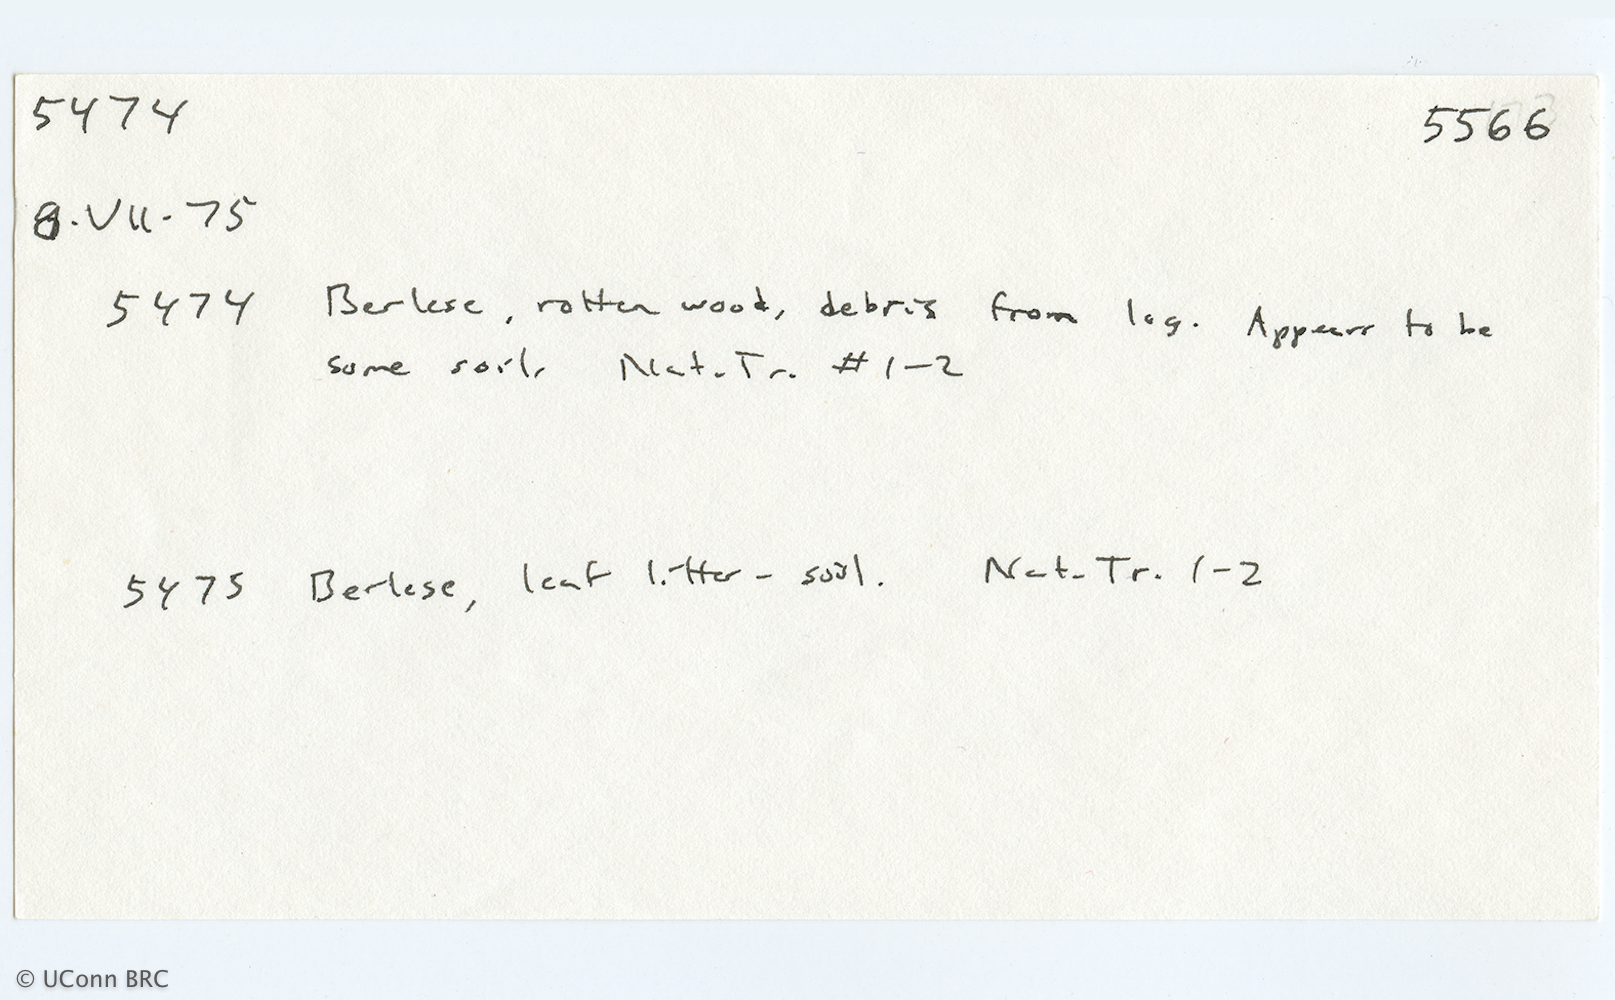 5474 5566
8.VII-75
5474 Berlese, rotten wood, debris from log. Appears to be
some soil. Nat. Tr. #1-2
5475 Berlese, leaf litter - soil. Nat. Tr. 1-2
© UConn BRC